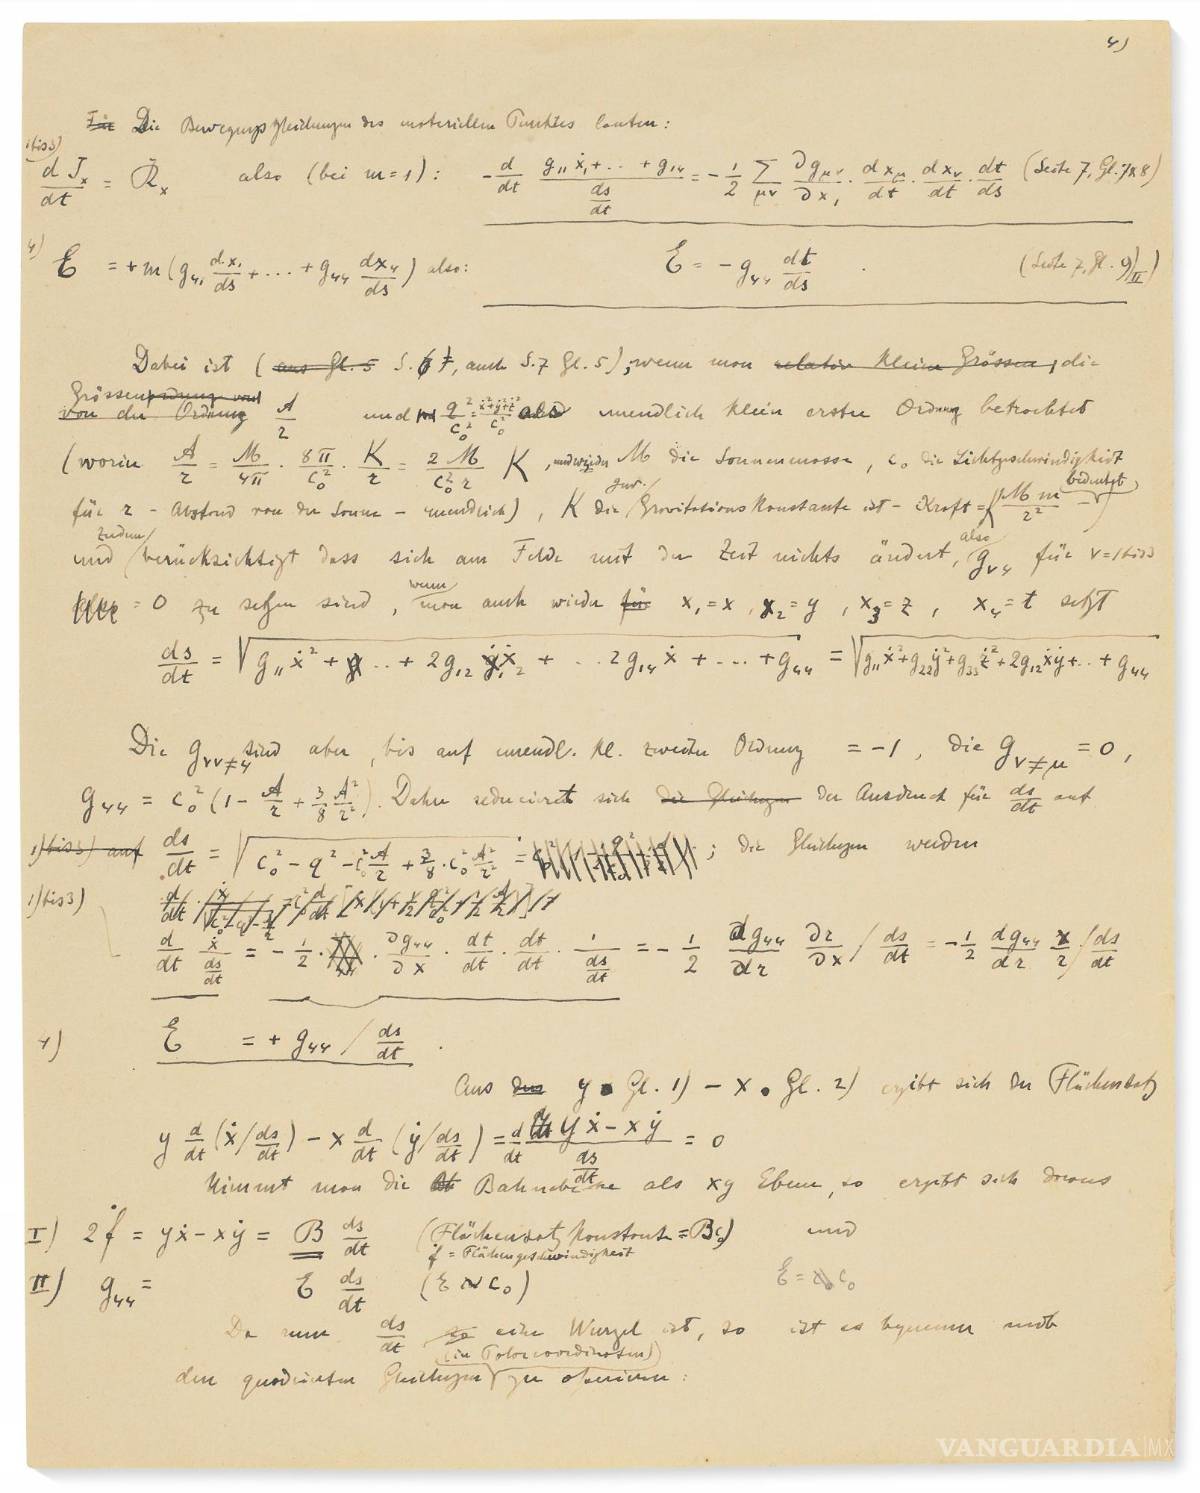 4)
Die Bewegungsgleichungen des materiellen Punktes lauten:
1 bis 3)
dJₓ/dt = 𝔎ₓ also (bei m=1): -d/dt (g₁₁ẋ₁+..+g₁₄)/(ds/dt) = -1/2 Σ_μν ∂g_μν/∂x₁ · dx_μ/dt · dx_ν/dt · dt/ds (Seite 7, Gl. 7 & 8)
4) E = +m(g₄₁ dx₁/ds + ... + g₄₄ dx₄/ds) also: E = -g₄₄ dt/ds . (Seite 7, Gl. 9)II)
Dabei ist (aus Gl. 5 S. 7, auch S. 7 Gl. 5), wenn man relativ kleine Grössen, die
Grössenordnung und
von der Ordnung A/r und q²/c₀² = (ẋ²+ẏ²+ż²)/c₀² also unendlich klein erster Ordnung betrachtet
(worin A/r = M/4π · 8π/c₀² · K/r = 2M/c₀²r K, M die Sonnenmasse, c₀ die Lichtgeschwindigkeit
für r - Abstand von der Sonne - unendlich), K die Gravitationskonstante ist - Kraft = (Mm/r²) bedeutet
und zudem berücksichtigt dass sich am Felde mit der Zeit nichts ändert, also g_ν4 für ν=1 bis 3
= 0 zu setzen sind, wenn man auch wieder für x₁=x, x₂=y, x₃=z, x₄=t setzt
ds/dt = √(g₁₁ẋ² + .. + 2g₁₂ẋ₁ẋ₂ + ..2g₁₄ẋ + ... + g₄₄) = √(g₁₁ẋ²+g₂₂ẏ²+g₃₃ż²+2g₁₂ẋẏ+..+g₄₄)
Die g_νν≠4 sind aber, bis auf unendl. kl. zweiter Ordnung = -1, die g_ν≠μ = 0,
g₄₄ = c₀²(1 - A/r + 3/8 A²/r²). Daher reducieret sich die Gleichungen der Ausdruck für ds/dt auf
1) bis 3) auf ds/dt = √(c₀² - q² - c₀² A/r + 3/8 · c₀² A²/r²) = ; die Gleichungen werden
1) bis 3)
d/dt ẋ/(ds/dt) = -1/2 · ∂g₄₄/∂x · dt/dt · dt/dt · 1/(ds/dt) = -1/2 dg₄₄/dr ∂r/∂x / ds/dt = -1/2 dg₄₄/dr x/r / ds/dt
4) E = + g₄₄ / ds/dt .
Aus den y • Gl. 1) - x • Gl. 2) ergibt sich der Flächensatz
y d/dt (ẋ/ds/dt) - x d/dt (ẏ/ds/dt) = d/dt (yẋ - xẏ)/(ds/dt) = 0
Nimmt man die Bahnebene als xy Ebene, so ergibt sich daraus
I) 2ḟ = yẋ - xẏ = B ds/dt (Flächensatzkonstante = Bc₀) und
ḟ = Flächengeschwindigkeit
II) g₄₄ = E ds/dt (E ∾ c₀) E = c₀
Da nun ds/dt eine Wurzel ist, so ist es bequemer mit
den quadrierten Gleichungen (in Polarcoordinaten) zu operieren:
VANGUARDIA|MX